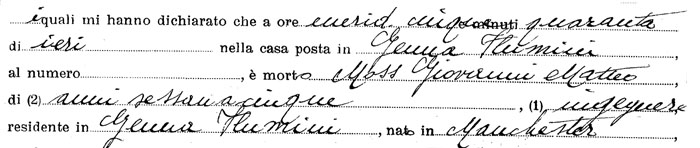 i quali mi hanno dichiarato che a ore merid. cinque e minuti quaranta
di ieri nella casa posta in Genna Flumini
al numero , è morto Moss Giovanni Matteo
di (2) anni sessantacinque , (1), ingegnere
residente in Genna Flumini , nato in Manchester ,